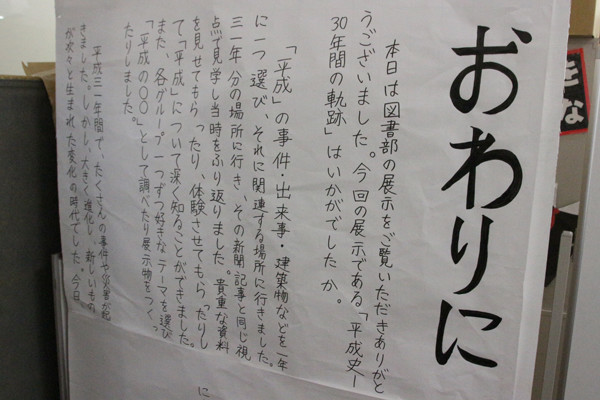 おわりに
本日は図書部の展示をご覧いただきありがと
うございました。今回の展示である「平成史ー
30年間の軌跡」はいかがでしたか。
「平成」の事件・出来事・建築物などを一年
に一つ選び、それに関連する場所に行きました。
三一年分の場所に行き、その新聞記事と同じ視
点で見学し当時をふり返りました。貴重な資料
を見せてもらったり、体験させてもらったりし
て「平成」について深く知ることができました。
また、各グループ一つずつ好きなテーマを選び
「平成の〇〇」として調べたり展示物をつくっ
たりしました。
平成三一年間で、たくさんの事件や災害が起
きました。しかし、大きく進化し、新しいもの
が次々と生まれた変化の時代でした。今日
に